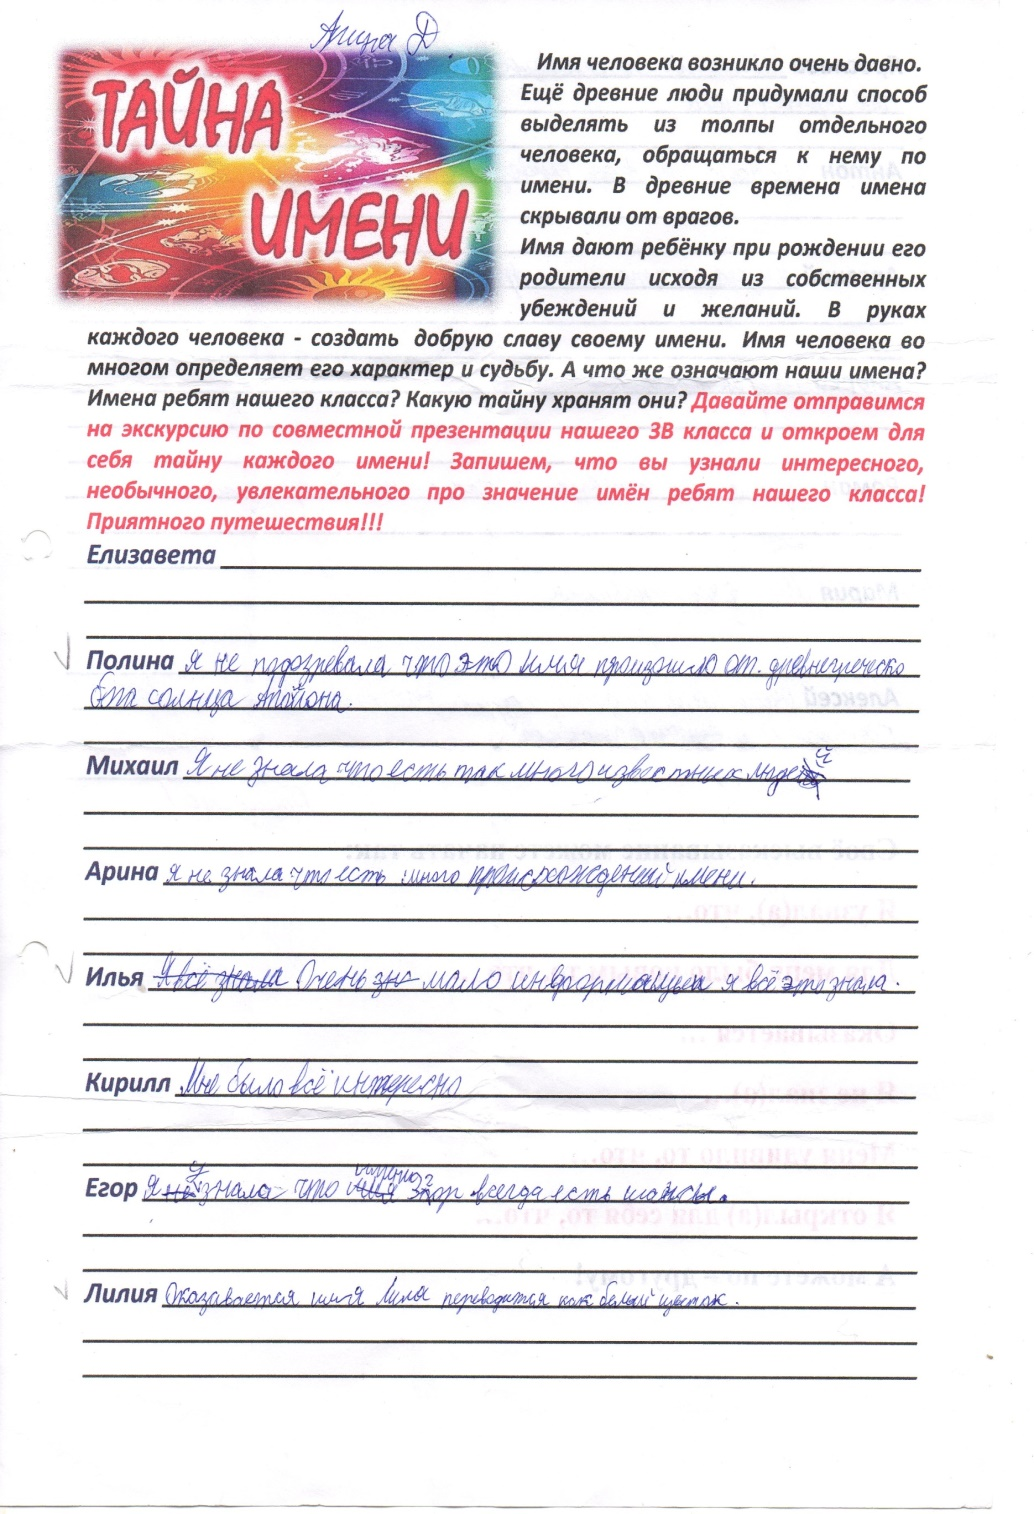 Арина Д.
ТАЙНА
ИМЕНИ
Имя человека возникло очень давно.
Ещё древние люди придумали способ
выделять из толпы отдельного
человека, обращаться к нему по
имени. В древние времена имена
скрывали от врагов.
Имя дают ребёнку при рождении его
родители исходя из собственных
убеждений и желаний. В руках
каждого человека - создать добрую славу своему имени. Имя человека во
многом определяет его характер и судьбу. А что же означают наши имена?
Имена ребят нашего класса? Какую тайну хранят они? Давайте отправимся
на экскурсию по совместной презентации нашего 3В класса и откроем для
себя тайну каждого имени! Запишем, что вы узнали интересного,
необычного, увлекательного про значение имён ребят нашего класса!
Приятного путешествия!!!
Елизавета
Полина я не подозревала что это имя произошло от. древнегреческо
бога солнца
Михаил Я не знала что есть так много известных людей
Арина я не знала что есть много происхождений имени.
Илья Я всё знала Очень зна мало информации я всё это знала.
Кирилл Мне было всё интересно
Егор Я узнала что у всегда есть шансы.
Лилия Оказавается имя Лилия переводится как белый цветок.